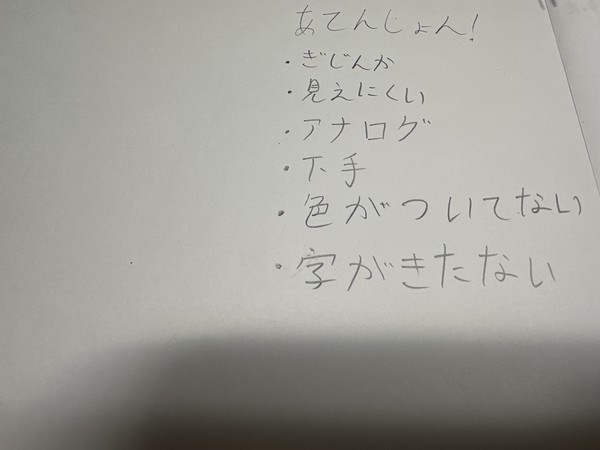 あてんじょん!
・ぎじんか
・見えにくい
・アナログ
・下手
・色がついてない
・字がきたない